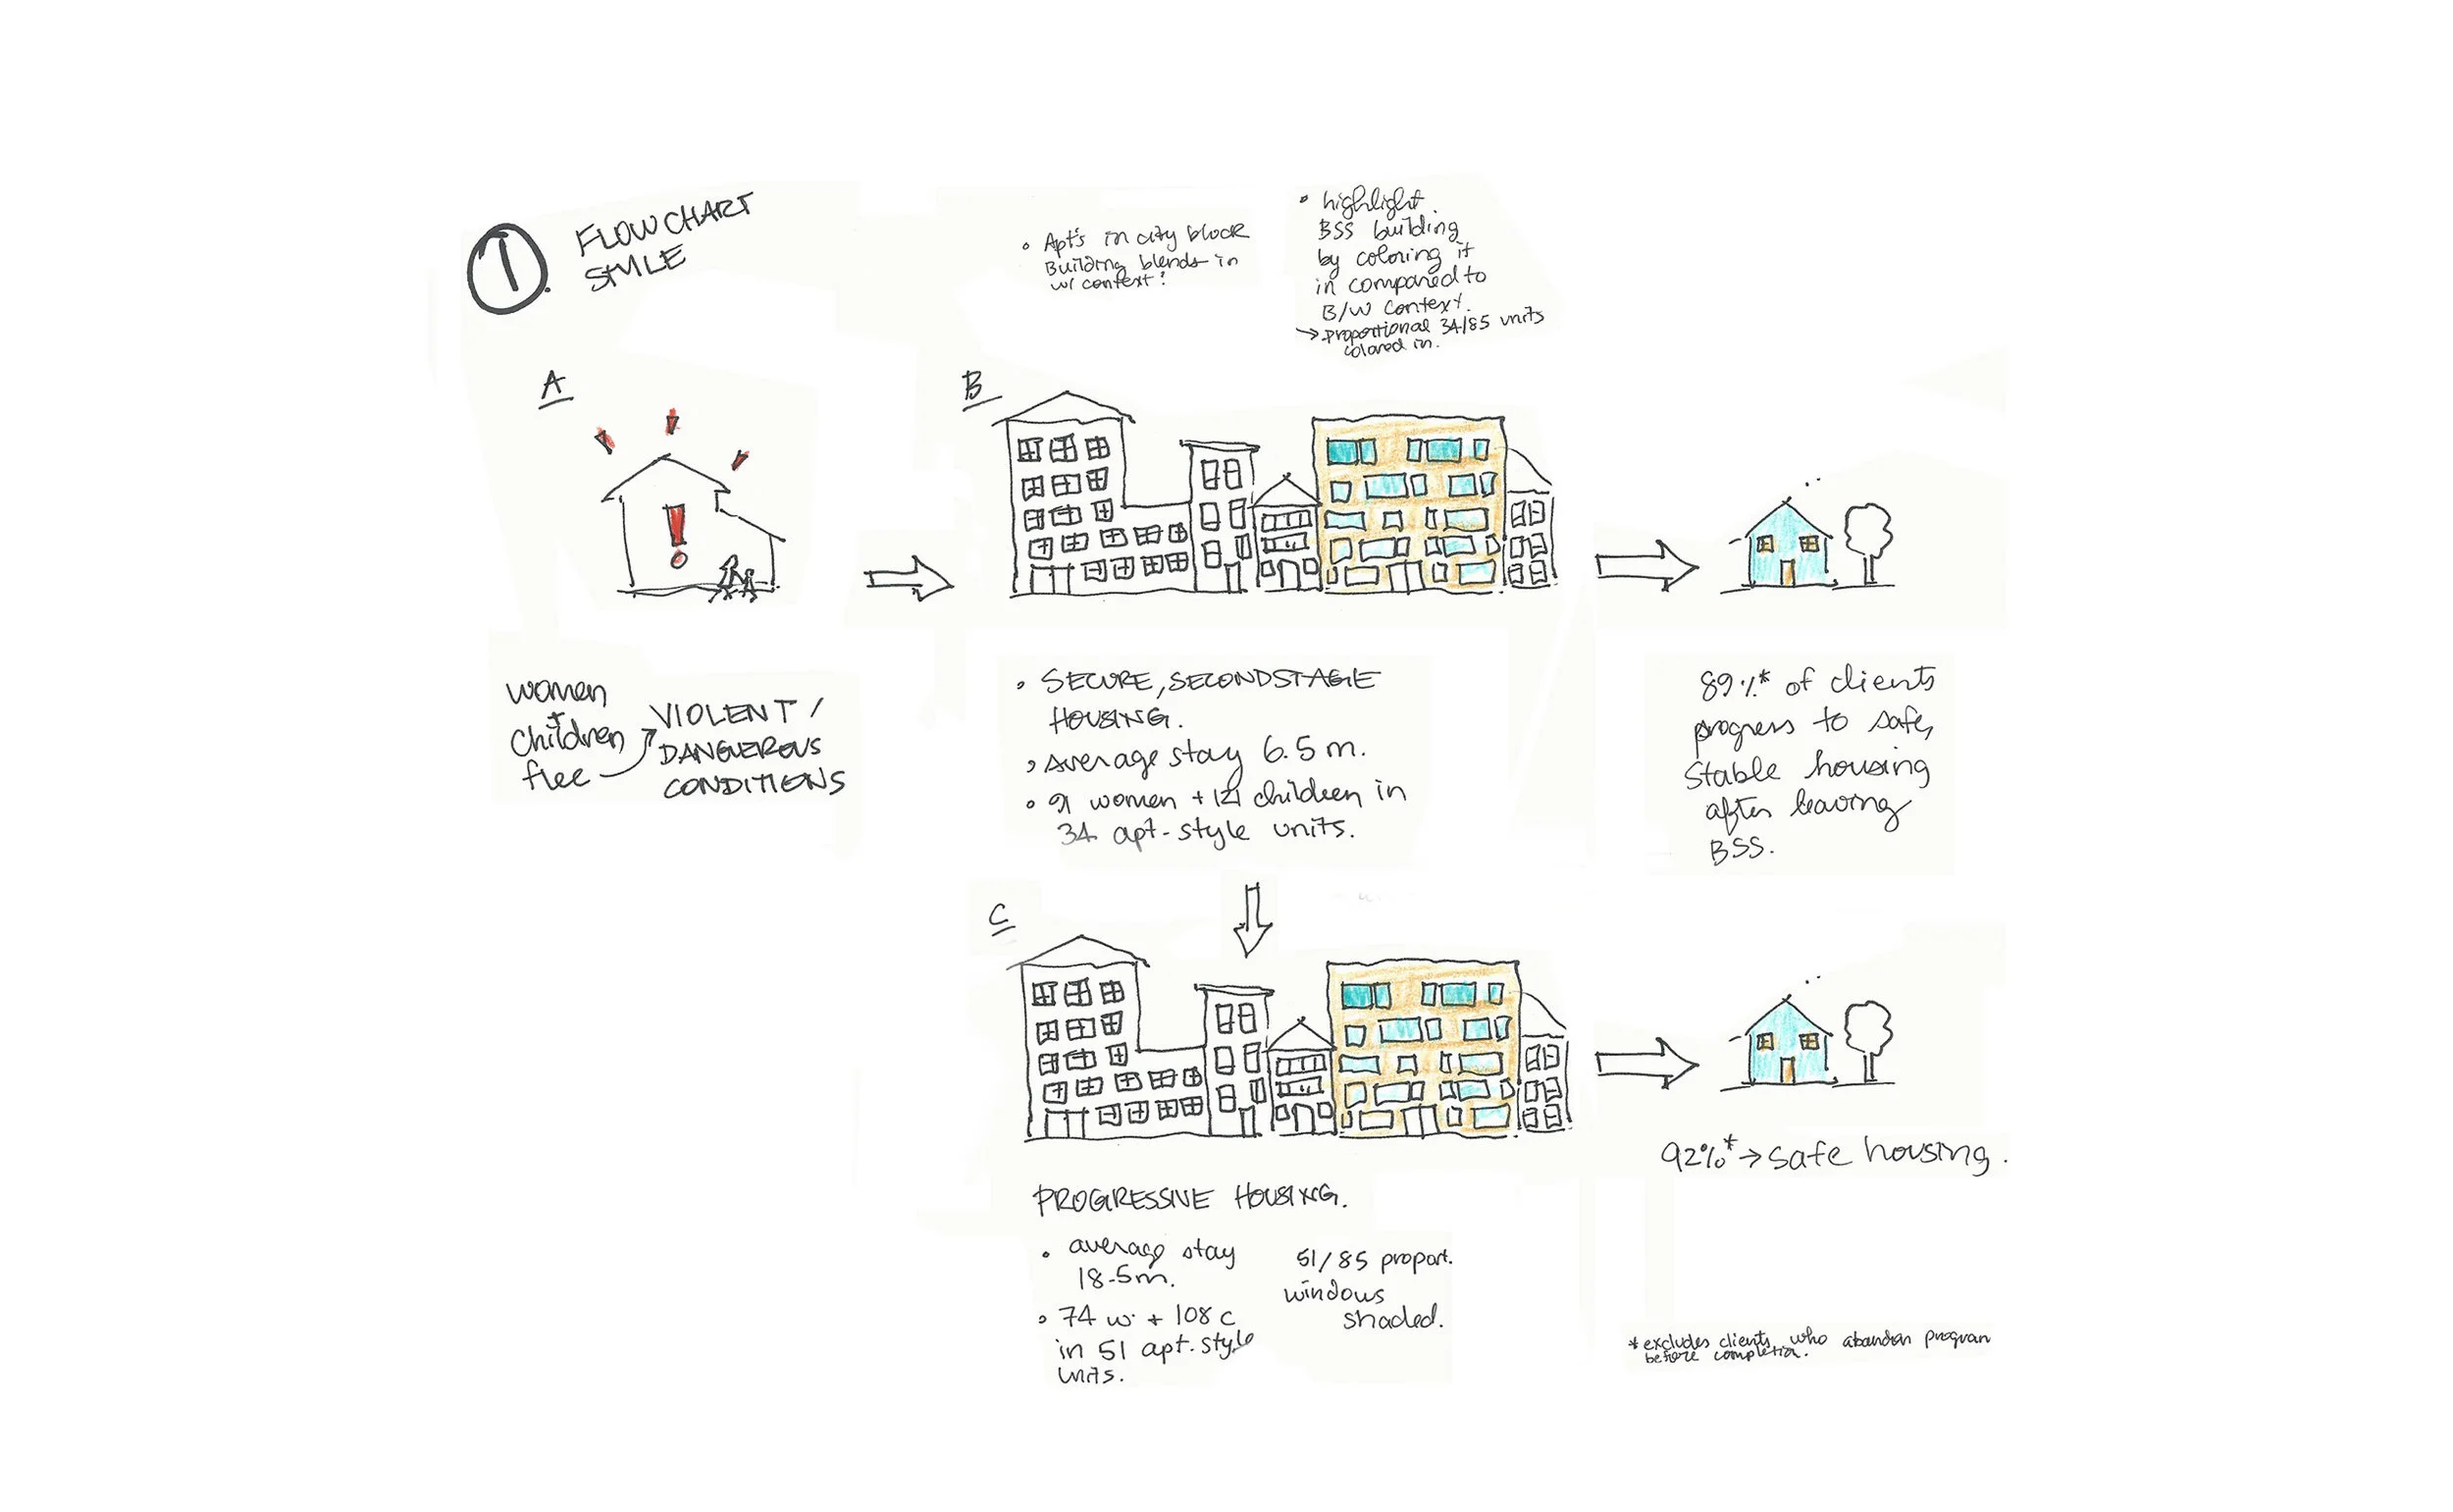 1.
FLOWCHART
STYLE
• Apt's in city block
Building blends in
w/ context!
• highlight
BSS building
by coloring it
in compared to
B/W context.
→ proportional 34/85 units
colored in.
A
B
women
+
children
flee → VIOLENT /
DANGEROUS
CONDITIONS
• SECURE, SECOND STAGE
HOUSING.
• Average stay 6.5 m.
• 91 women + 121 children in
34 apt-style units.
89%* of clients
progress to safe,
stable housing
after leaving
BSS.
C
92%* → safe housing.
PROGRESSIVE HOUSING.
• average stay
18.5m.
• 74 w. + 108 c
in 51 apt. style
units.
51/85 proport.
windows
shaded.
* excludes clients who abandon program
before completion.